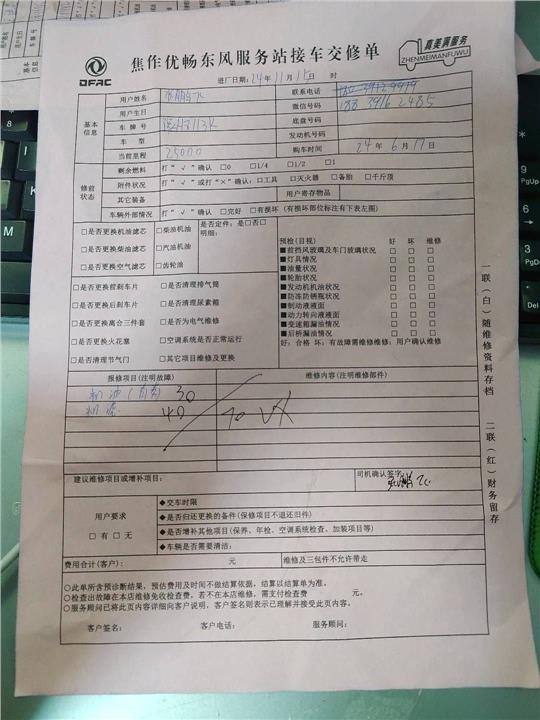 DFAC
焦作优畅东风服务站接车交修单
真美满服务
ZHENMEIMANFUWU
进厂日期：24年11月15日 时
基本信息
用户姓名
联系电话
用户生日
微信号码 188 3916 2485
车牌号
底盘号码
车型
发动机号码
当前里程 25000
购车时间 24年6月17日
修前状态
剩余燃料 打“√”确认 □0 □1/4 □1/2 □1
附件状况 打“√”或打“×”确认：□工具 □灭火器 □备胎 □千斤顶
其它装备 用户寄存物品
车辆外部情况 打“√”确认 □完好 □有损坏（有损坏部位标注有下表左圈）
□是否更换机油滤芯 □柴油机油 是否定件：是□否□
明细：
□是否更换柴油滤芯 □汽油机油
□是否更换空气滤芯 □齿轮油
□是否更换前刹车片 □是否清理排气筒
□是否更换后刹车片 □是否清理尿素箱
□是否更换离合三件套 □是否为电气维修
□是否更换火花塞 □空调系统是否正常运行
□是否清理节气门 □其它项目维修及更换
预检(目视) 好 坏 维修
■前挡风玻璃及车门玻璃状况 □ □ □
■灯具情况 □ □ □
■油量状况 □ □ □
■轮胎状况 □ □ □
■发动机机油状况 □ □ □
■防冻防锈瓶状况 □ □ □
■制动液液面 □ □ □
■动力转向液液面 □ □ □
■变速箱漏油情况 □ □ □
■后桥漏油情况 □ □ □
好：合格 坏：有故障需维修维修：用户确认维修
报修项目(注明故障) 维修内容(注明维修部件)
机油 30
机滤 40
70
建议维修项目或增补项目：
司机确认签字：
用户要求
□有 □无
◆交车时限
◆是否归还更换的备件(保修项目不退还旧件)
◆是否增补其他项目(保养、年检、空调系统检查、加装项目等)
◆车辆是否需要清洁：
费用合计(客户)： 元 维修及三包件不允许带走
○此单所含预诊断结果，预估费用及时间不做结算依据，结算以结算单为准。
○检查出故障在本店维修免收检查费，若不在本店维修，需支付检查费 元。
○服务顾问已将此页内容详细向客户说明，客户签名则表示已理解并接受此页内容。
客户签名： 客户电话： 服务顾问：
一联（白）随维修资料存档 二联（红）财务留存